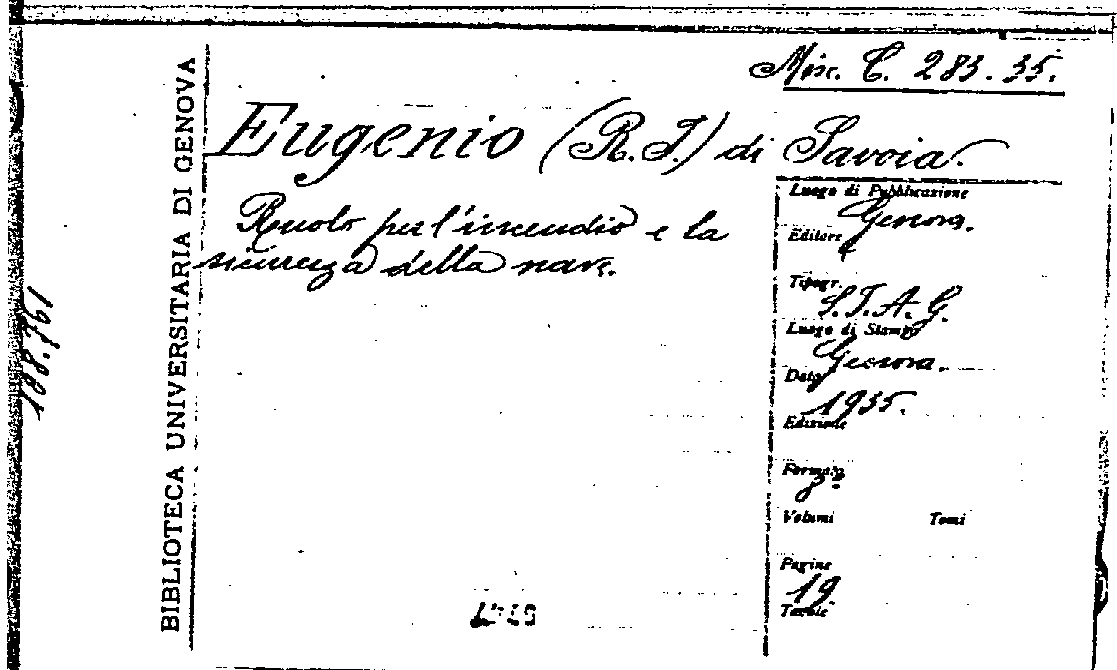 Misc. C. 283.35.
BIBLIOTECA UNIVERSITARIA DI GENOVA
188.761
Eugenio (R. I.) di Savoia.
Ruolo per l'incendio e la
sicurezza della nave.
Luogo di Pubblicazione
Genova.
Editore
Tipogr.
S.I.A.G.
Luogo di Stampa
Genova.
Data
1935.
Edizione
Formato
8º
Volumi Tomi
Pagine
19
Tavole